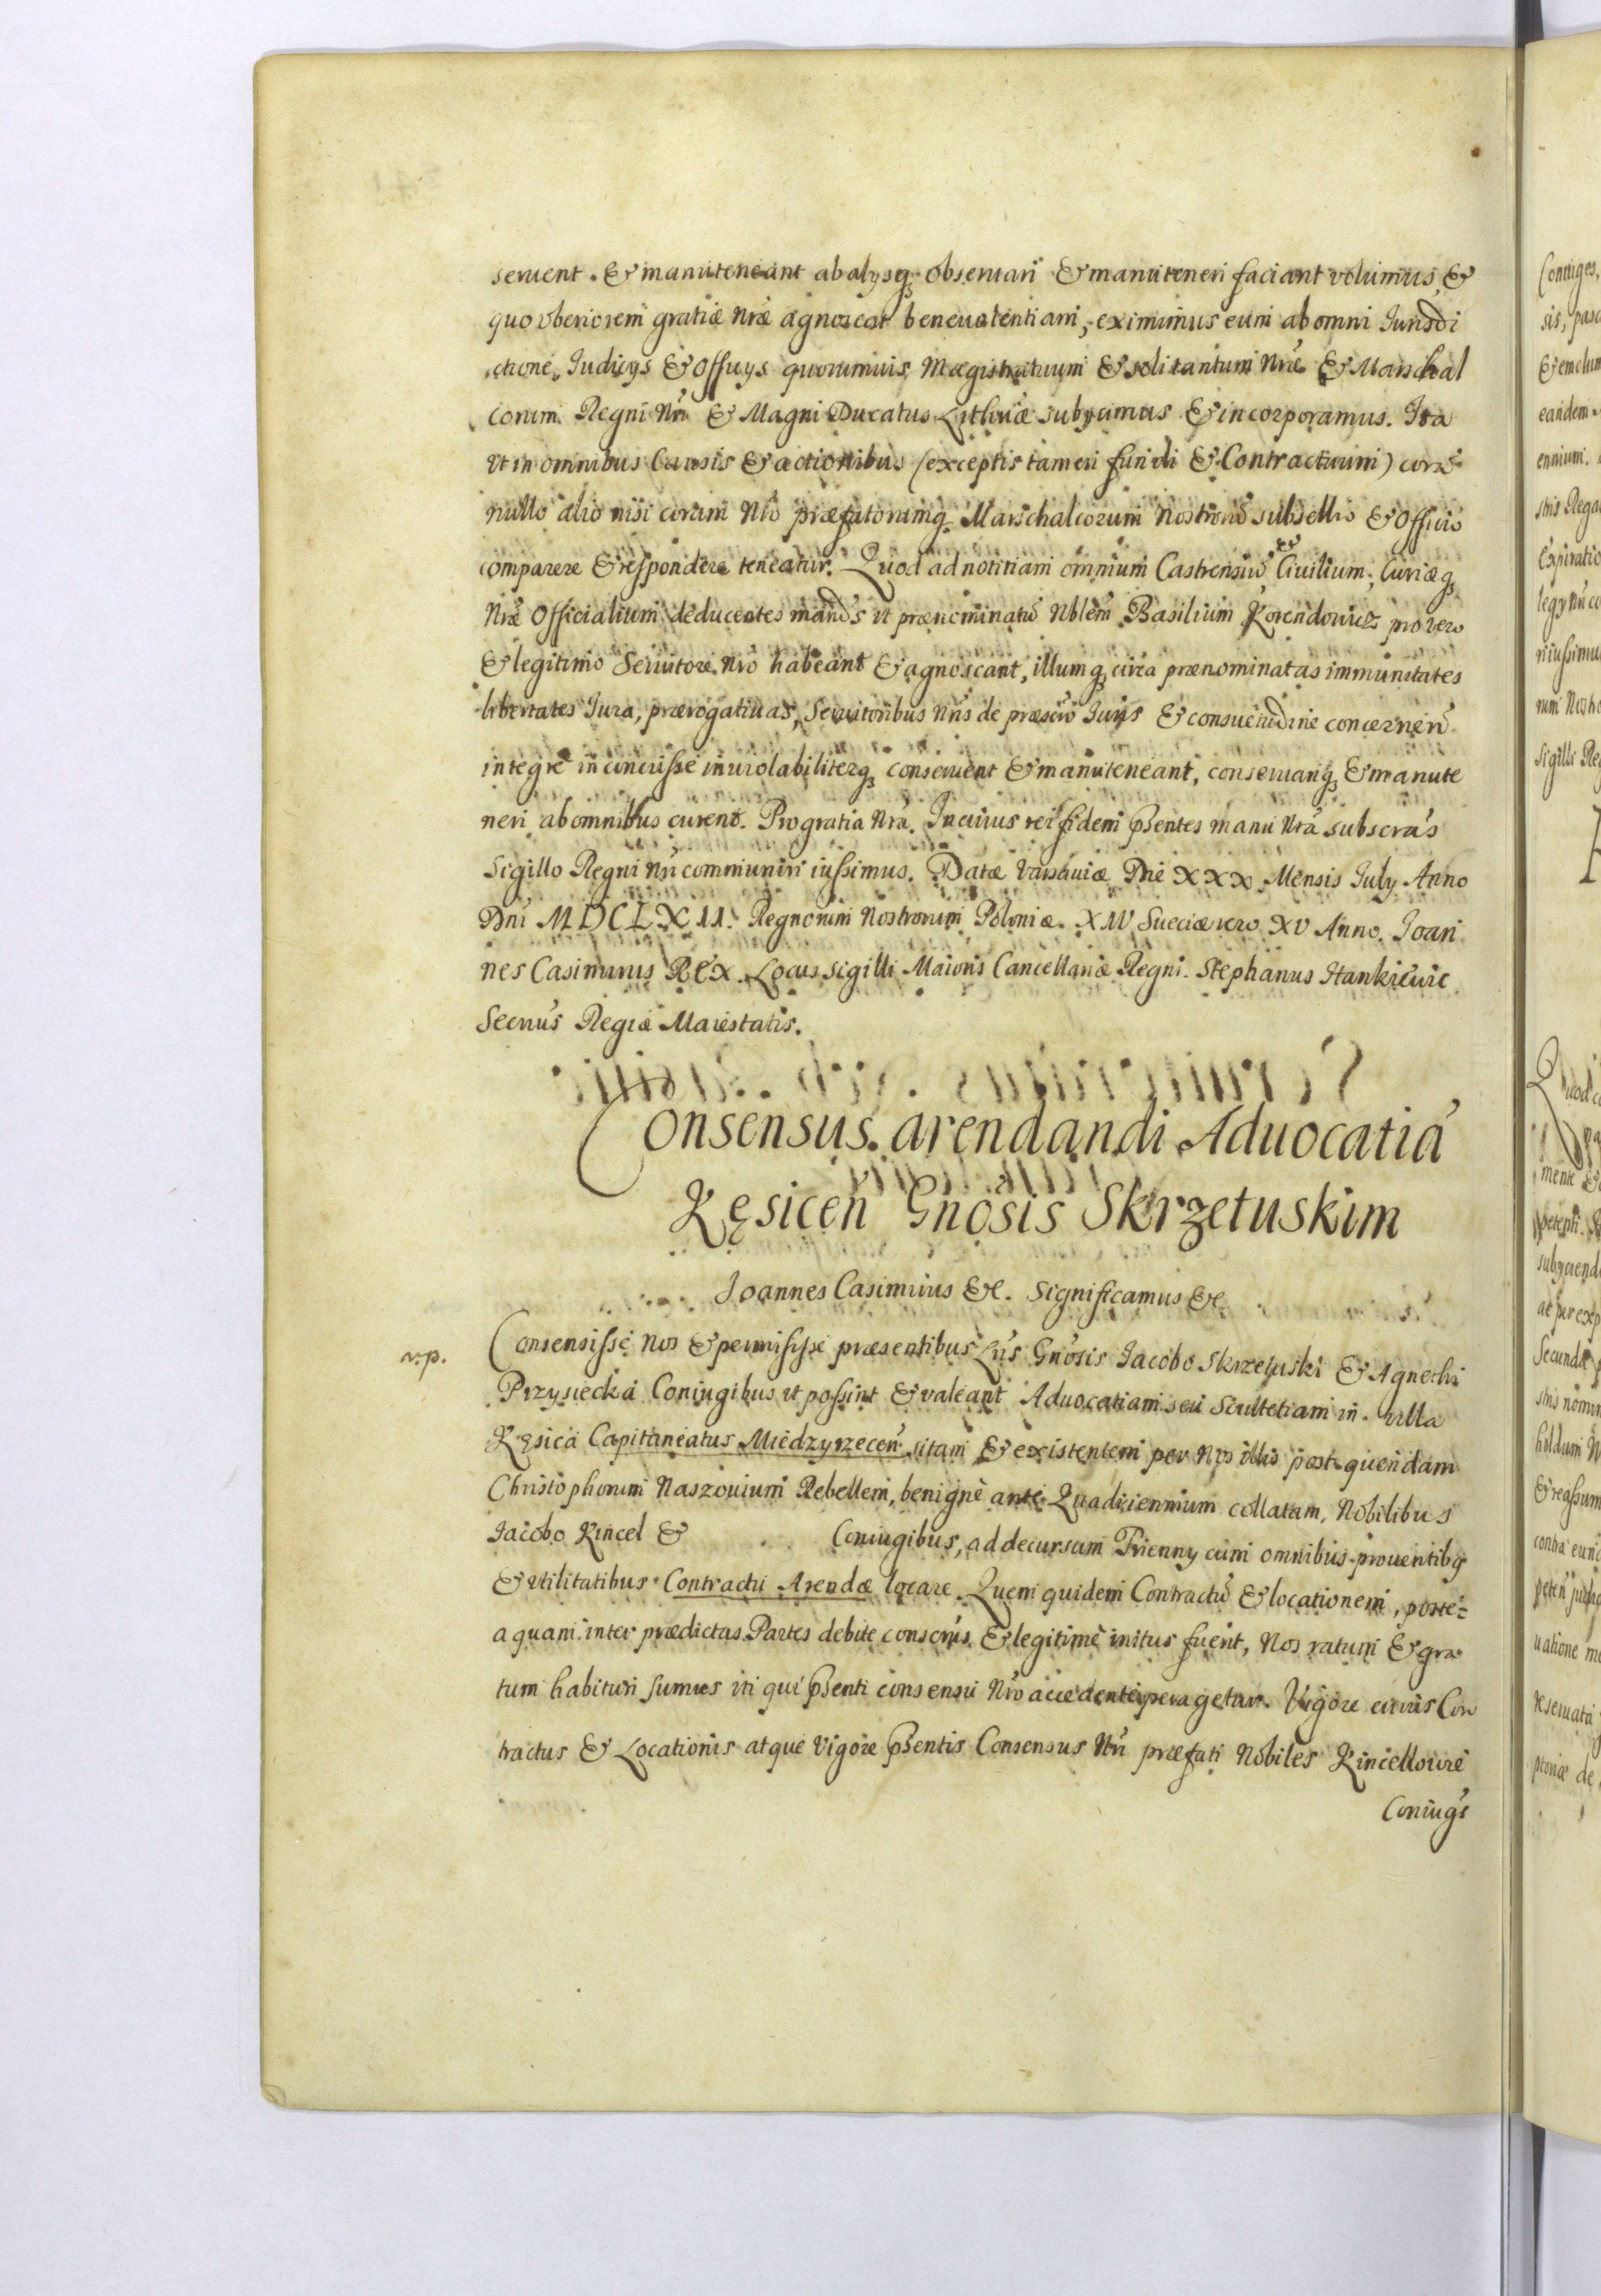 seruent. & manuteneant ab alysq; obseruari & manuteneri faciant volumus, &
quo vberiorem gratiæ nræ agnoscat beneuolentiam, eximimus eum ab omni Jurisdi
ctione, Judicys & Officys quorumuis Magistratuum & soli tantum Nræ & Marschal
corum Regni Nri & Magni Ducatus Lithuæ subycimus & incorporamus. Ita
vt in omnibus Causis & actionibus (exceptis tamen fundi & Contractuum) corã
nullo alio nisi coram Nro præfatorumq; Marschalcorum Nostrorũ subsellio & Officio
comparere & respondere teneatur. Quod ad notitiam omnium Castrensiũ & Ciuilium, Curiæq;
Nræ Officialium deducentes mandũs vt prænominatũ Nblem Basilium Korendowicz pro vero
& legitimo Seruitore Nro habeant & agnoscant, illumq; circa prænominatas immunitates
libertates Jura, prærogatiuas, Seruitoribus Nris de præscro Juris & consuetudine concernen̄
integre inconcusse inuiolabiliterq; conseruent & manuteneant, conseruariq; & manute
neri ab omnibus curent. Pro gratia Nra. In cuius rei fidem pñsentes manu Nra subscras
Sigillo Regni Nri communiri iussimus. Datæ Varsauiæ Die XXX Mensis July Anno
Dni MDCLXII. Regnorum Nostrorum Poloniæ XIV Sueciæ vero XV Anno. Joan
nes Casimirus REX. Locus sigilli Maioris Cancellariæ Regni. Stephanus Hankiewic
Secrius Regiæ Maiestatis.
Consensus arendandi Aduocatiã
Kęsicen̄ Gnosis Skrzetuskim
Joannes Casimirus &c. Significamus &c
n.p.
Consensisse Nos & permisisse præsentibus Lris Gnosis Jacobo Skrzetuski & Agnethi
Przysiecka Coniugibus vt possint & valeant Aduocatiam seu Scultetiam in villa
Kęsica Capitaneatus Miedzyrzecen̄ sitam & existentem per Nos illis post quendam
Christophorum Naszouium Rebellem, benignè ante Quadriennium collatam, Nobilibus
Jacobo Kincel & Coniugibus, ad decursum Trienny cum omnibus prouentibq
& vtilitatibus Contractu Arendæ locare. Quem quidem Contractũ & locationem, poste-
a quam inter prædictas Partes debite conscrus & legitimè initus fuerit, Nos ratum & gra
tum habituri sumus iri qui pñsenti consensu Nro accedente peragetur. Vigore cuius Con
tractus & Locationis atque Vigore pñsentis Consensus Nri præfati Nobiles Kincellowie
Coniugs